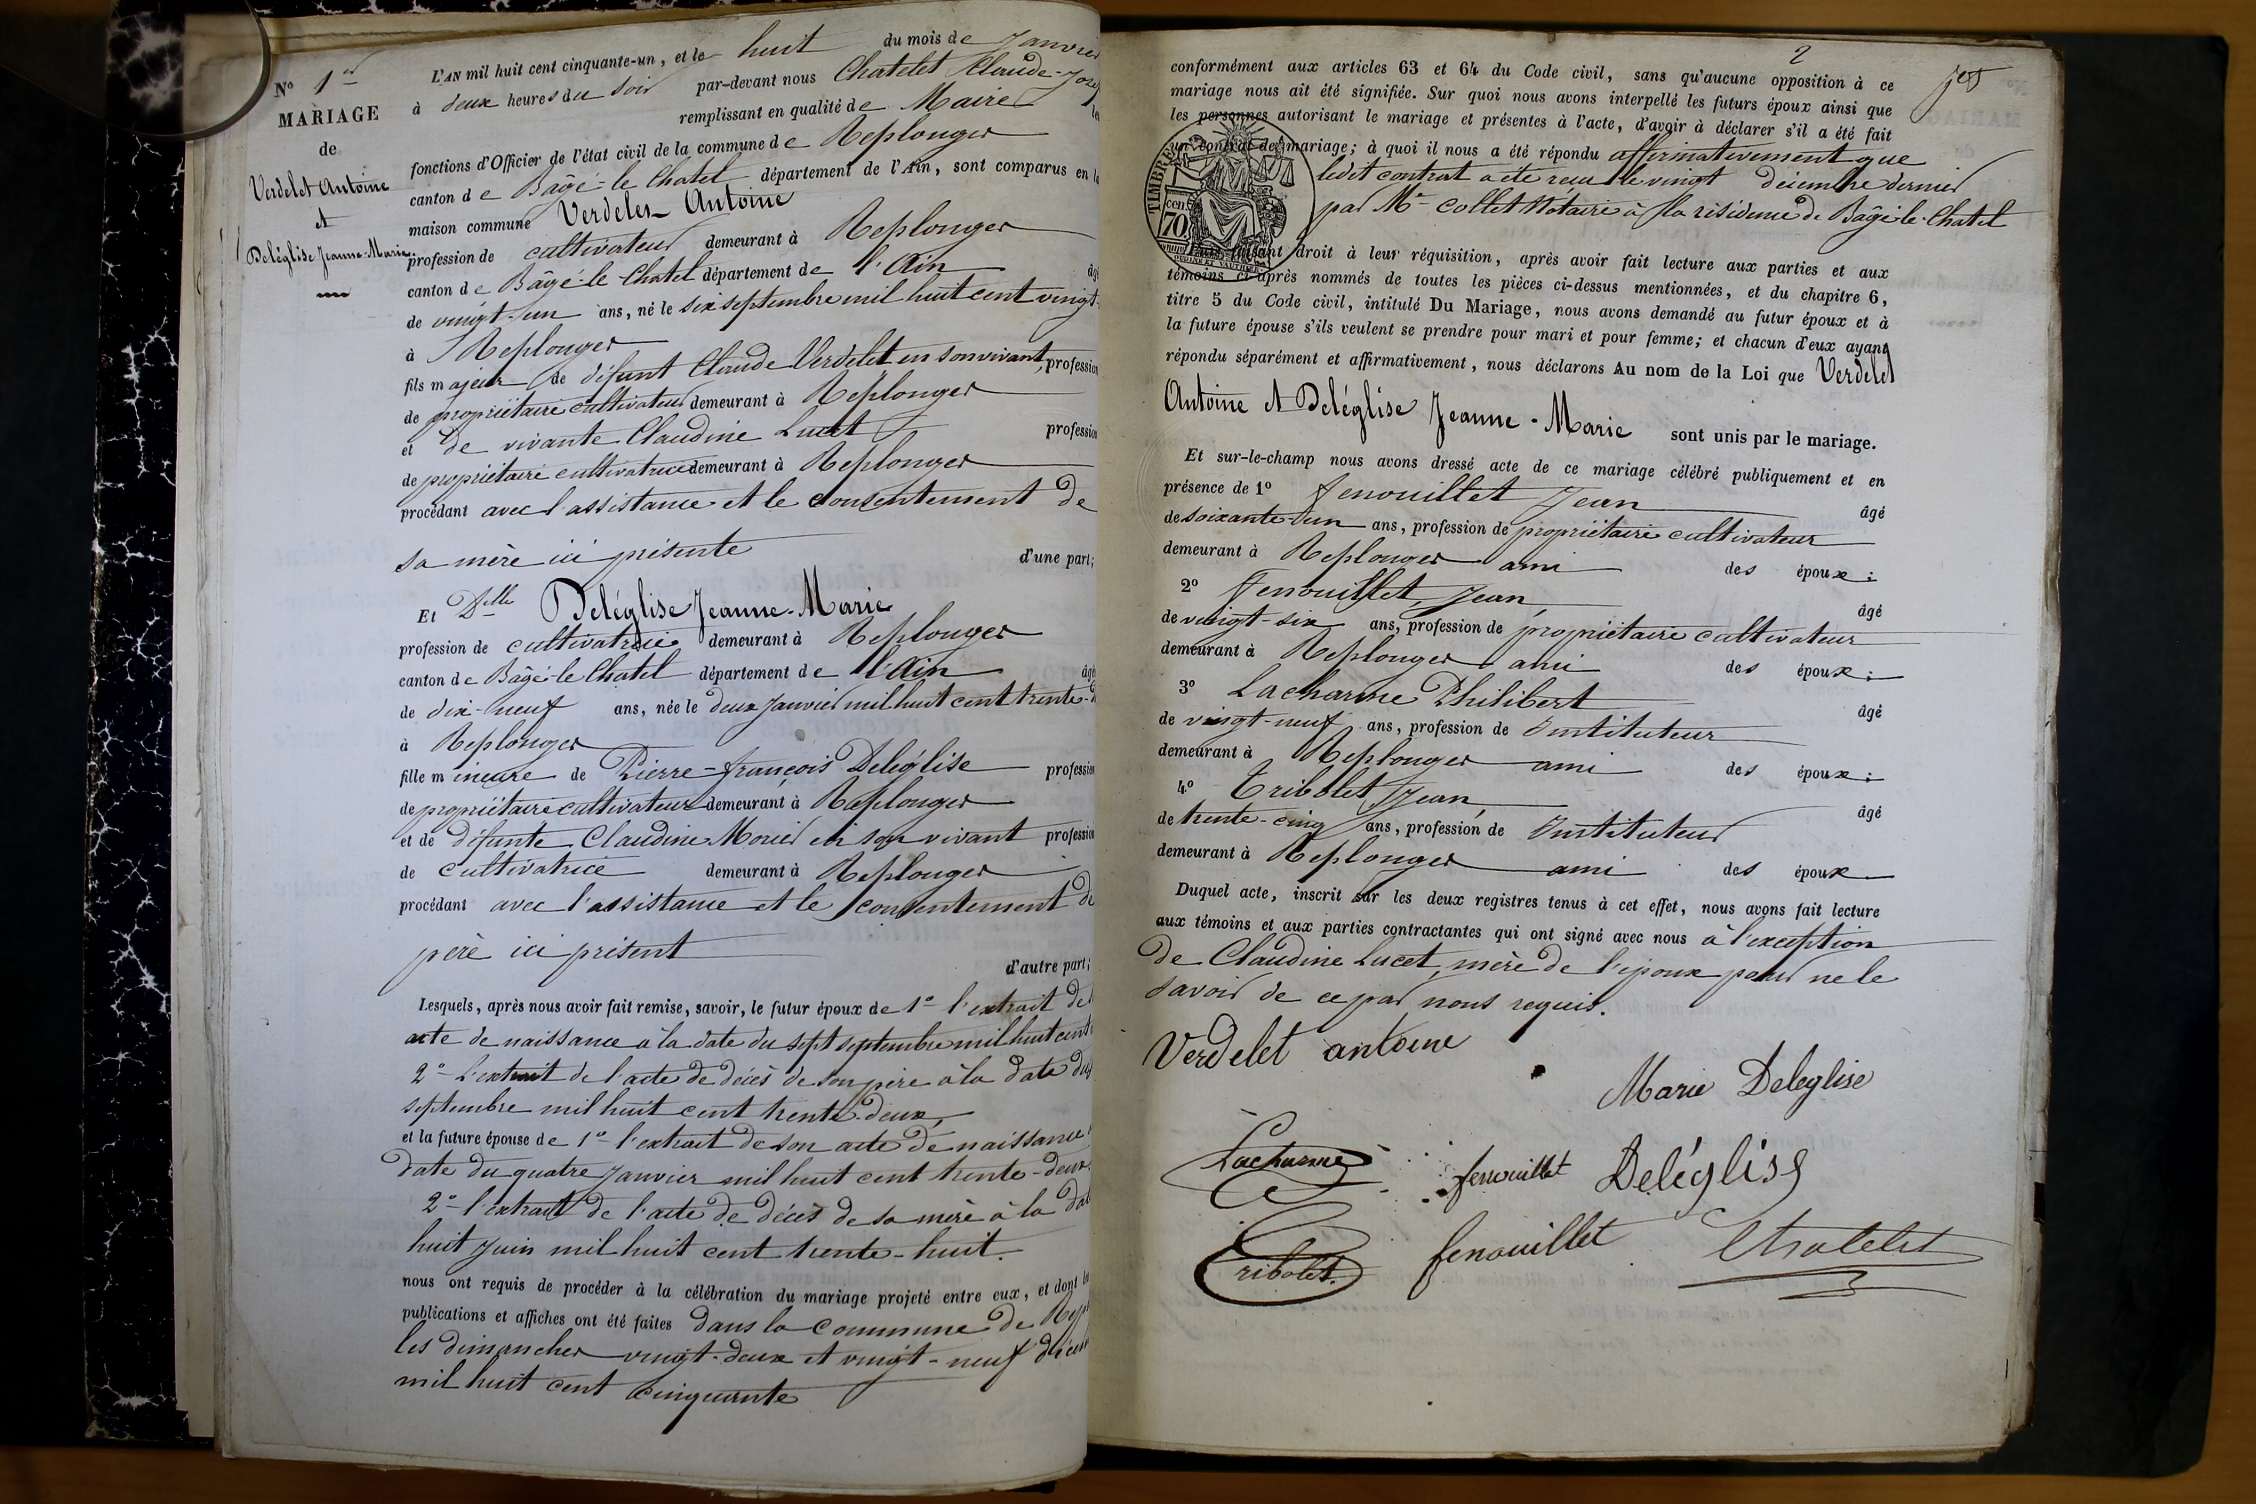 N° 1er
MARIAGE
de
Verdelet Antoine
et
Deléglise Jeanne-Marie
L'AN mil huit cent cinquante-un, et le huit du mois de Janvier
à deux heures du soir par-devant nous Chatelet Claude-Jose
remplissant en qualité de Maire les
fonctions d'Officier de l'état civil de la commune de Replonger
canton de Bâgé-le-Chatel département de l'Ain, sont comparus en la
maison commune Verdelet Antoine
profession de cultivateur demeurant à Replonger
canton de Bâgé-le-Chatel département de l'Ain âgé
de vingt-un ans, né le six septembre mil huit cent vingt-
à Replonger
fils majeur de défunt Claude Verdelet en son vivant, profession
de propriétaire cultivateur demeurant à Replonger
et de vivante Claudine Lucet profession
de propriétaire cultivatrice demeurant à Replonger
procédant avec l'assistance et le consentement de
sa mère ici présente d'une part;
Et Delle Deléglise Jeanne-Marie
profession de cultivatrice demeurant à Replonger
canton de Bâgé-le-Chatel département de l'Ain âgé
de dix-neuf ans, née le deux Janvier mil huit cent trente-d
à Replonger
fille mineure de Pierre-françois Deléglise profession
de propriétaire cultivateur demeurant à Replonger
et de défunte Claudine Morier en son vivant profession
de cultivatrice demeurant à Replonger
procédant avec l'assistance et le consentement de
père ici présent
d'autre part;
Lesquels, après nous avoir fait remise, savoir, le futur époux de 1° l'extrait de
acte de naissance à la date du sept septembre mil huit cent
2° L'extrait de l'acte de décès de son père à la date du
septembre mil huit cent trente-deux,
et la future épouse de 1° l'extrait de son acte de naissance
date du quatre Janvier mil huit cent trente-deux,
2° l'extrait de l'acte de décès de sa mère à la dat
huit Juin mil huit cent trente-huit.
nous ont requis de procéder à la célébration du mariage projeté entre eux, et dont les
publications et affiches ont été faites dans la commune de Repl
les dimanches vingt-deux et vingt-neuf décem
mil huit cent cinquante
2
conformément aux articles 63 et 64 du Code civil, sans qu'aucune opposition à ce
mariage nous ait été signifiée. Sur quoi nous avons interpellé les futurs époux ainsi que
les personnes autorisant le mariage et présentes à l'acte, d'avoir à déclarer s'il a été fait
un contrat de mariage; à quoi il nous a été répondu affirmativement que
ledit contrat a été reçu le vingt décembre dernier
par Me Collet Notaire à la résidence de Bâgé-le-Chatel
TIMBRE
70 cen.
Puis faisant droit à leur réquisition, après avoir fait lecture aux parties et aux
témoins ci-après nommés de toutes les pièces ci-dessus mentionnées, et du chapitre 6,
titre 5 du Code civil, intitulé Du Mariage, nous avons demandé au futur époux et à
la future épouse s'ils veulent se prendre pour mari et pour femme; et chacun d'eux ayant
répondu séparément et affirmativement, nous déclarons Au nom de la Loi que Verdelet
Antoine et Deléglise Jeanne-Marie sont unis par le mariage.
Et sur-le-champ nous avons dressé acte de ce mariage célébré publiquement et en
présence de 1° fenouillet Jean âgé
de soixante-un ans, profession de propriétaire cultivateur
demeurant à Replonger ami des époux;
2° fenouillet, Jean, âgé
de vingt-six ans, profession de propriétaire cultivateur
demeurant à Replonger ami des époux;
3° Lacharme Philibert âgé
de vingt-neuf ans, profession de Instituteur
demeurant à Replonger ami des époux;
4° Tribolet Jean, âgé
de trente-cinq ans, profession de Instituteur
demeurant à Replonger ami des époux
Duquel acte, inscrit sur les deux registres tenus à cet effet, nous avons fait lecture
aux témoins et aux parties contractantes qui ont signé avec nous à l'exception
de Claudine Lucet, mère de l'époux pour ne le
savoir de ce par nous requis.
Verdelet antoine
Marie Deleglise
Lacharme fenouillet Deléglise
Tribolet. fenouillet Chatelet